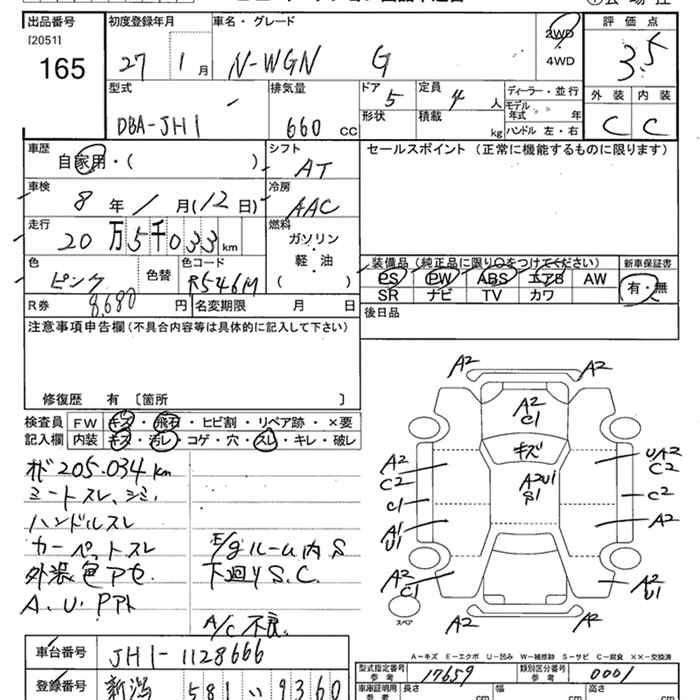 出品番号
[2051]
165
初度登録年月
27 1 月
車名・グレード
N-WGN G
2WD
4WD
評価点
3.5
型式
DBA-JH1
排気量
660 CC
ドア
5
定員
4 人
形状
積載
kg
ディーラー・並行
モデル年式 年
ハンドル 左・右
外装 内装
C C
車歴
自家用・( )
シフト
AT
セールスポイント (正常に機能するものに限ります)
車検
8 年 1 月(12日)
冷房
AAC
走行
20 万 5 千 0 3 3 km
燃料
ガソリン
軽・油
( )
色
ピンク
色替
色コード
R546M
装備品 (純正品に限り○をつけてください)
PS PW ABS エアB AW
SR ナビ TV カワ
新車保証書
有・無
R券 8,680 円
名変期限 月 日
後日品
注意事項申告欄 (不具合内容等は具体的に記入して下さい)
修復歴 有 〔箇所 〕
検査員
記入欄
FW キズ・飛石・ヒビ割・リペア跡・×要
内装 キズ・汚レ・コゲ・穴・スレ・キレ・破レ
205.034 km
シートスレ、シミ、
ハンドルスレ
カーペットスレ
外装色アセ
A.U.Pアト
E/gルーム内S
下廻りS.C.
A/C不良
A2 A2
A2
C1
キズ
A2U1
S1
A2
C2
C1
A1
U1
A2
C1
UA2
C2
C2
A2
A2
U1
A2 A2
スペア
A-キズ E-エクボ U-凹み W-補修跡 S-サビ C-腐食 ××-交換済
車台番号
JH1-1128666
登録番号
新潟 581 い 9360
型式指定番号
参考
17659
類別区分番号
参考
0001
車庫証明用
参考
長さ cm
幅 cm
高さ cm